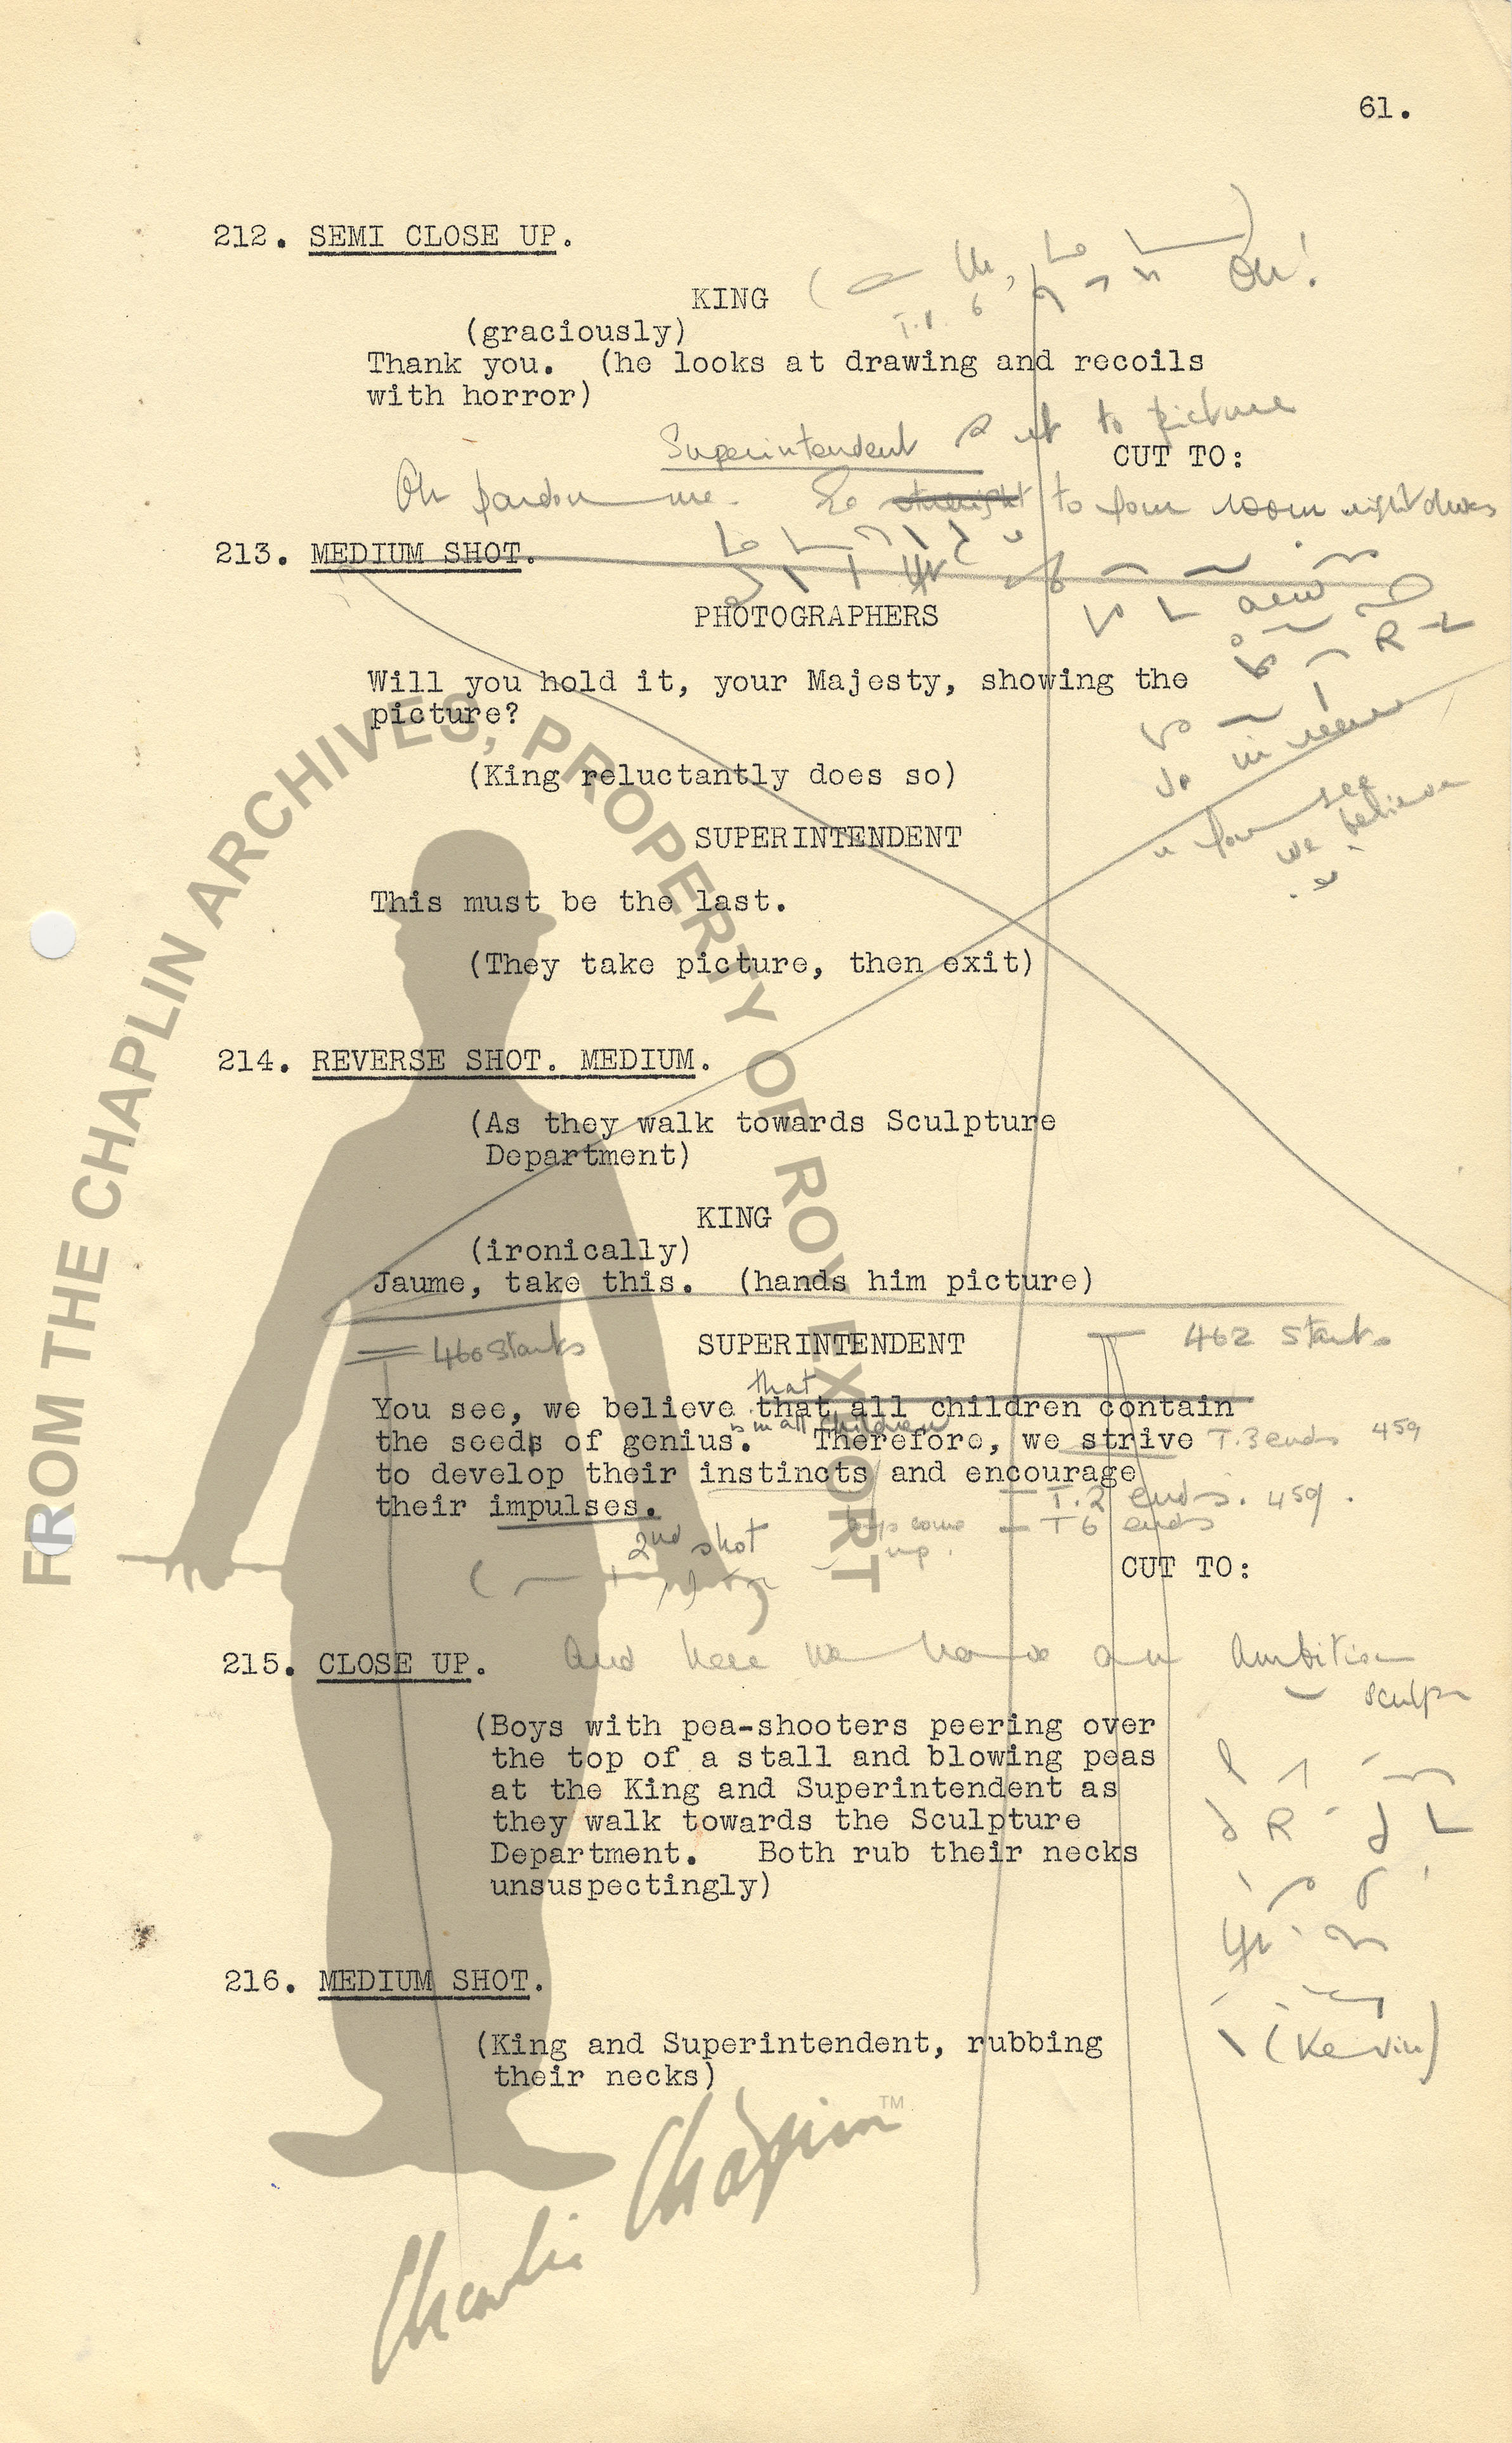 61.
212. SEMI CLOSE UP.
Oh!
KING
(graciously)
Thank you. (he looks at drawing and recoils
with horror)
to picture
Superintendent
CUT TO:
Oh pardon me. to your room right
213. MEDIUM SHOT.
PHOTOGRAPHERS
Will you hold it, your Majesty, showing the
picture?
(King reluctantly does so)
you see
we believe
SUPERINTENDENT
This must be the last.
(They take picture, then exit)
214. REVERSE SHOT. MEDIUM.
(As they walk towards Sculpture
Department)
KING
(ironically)
Jaume, take this. (hands him picture)
460 Starts
SUPERINTENDENT
462 Starts
that
You see, we believe that all children contain
is in all children
the seeds of genius. Therefore, we strive T.3 ends 459
to develop their instincts and encourage
their impulses. T.2 ends. 459.
2nd shot
boys come up. T6 ends
CUT TO:
215. CLOSE UP. And here we have an Ambitious
sculp
(Boys with pea-shooters peering over
the top of a stall and blowing peas
at the King and Superintendent as
they walk towards the Sculpture
Department. Both rub their necks
unsuspectingly)
216. MEDIUM SHOT.
(King and Superintendent, rubbing
their necks)
(Kevin)
FROM THE CHAPLIN ARCHIVES, PROPERTY OF ROY EXPORT
Charlie Chaplin™